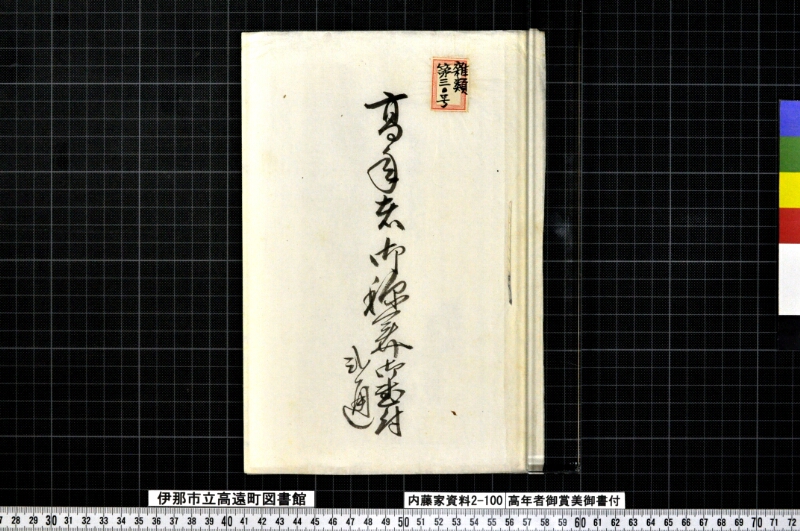 雑類
第三号
高年者御称美御書付
弐通
伊那市立高遠町図書館
内藤家資料2-100
高年者御賞美御書付
28 29 30 31 32 33 34 35 36 37 38 39 40 41 42 43 44 45 46 47 48 49 50 51 52 53 54 55 56 57 58 59 60 61 62 63 64 65 66 67 68 69 70 71 72